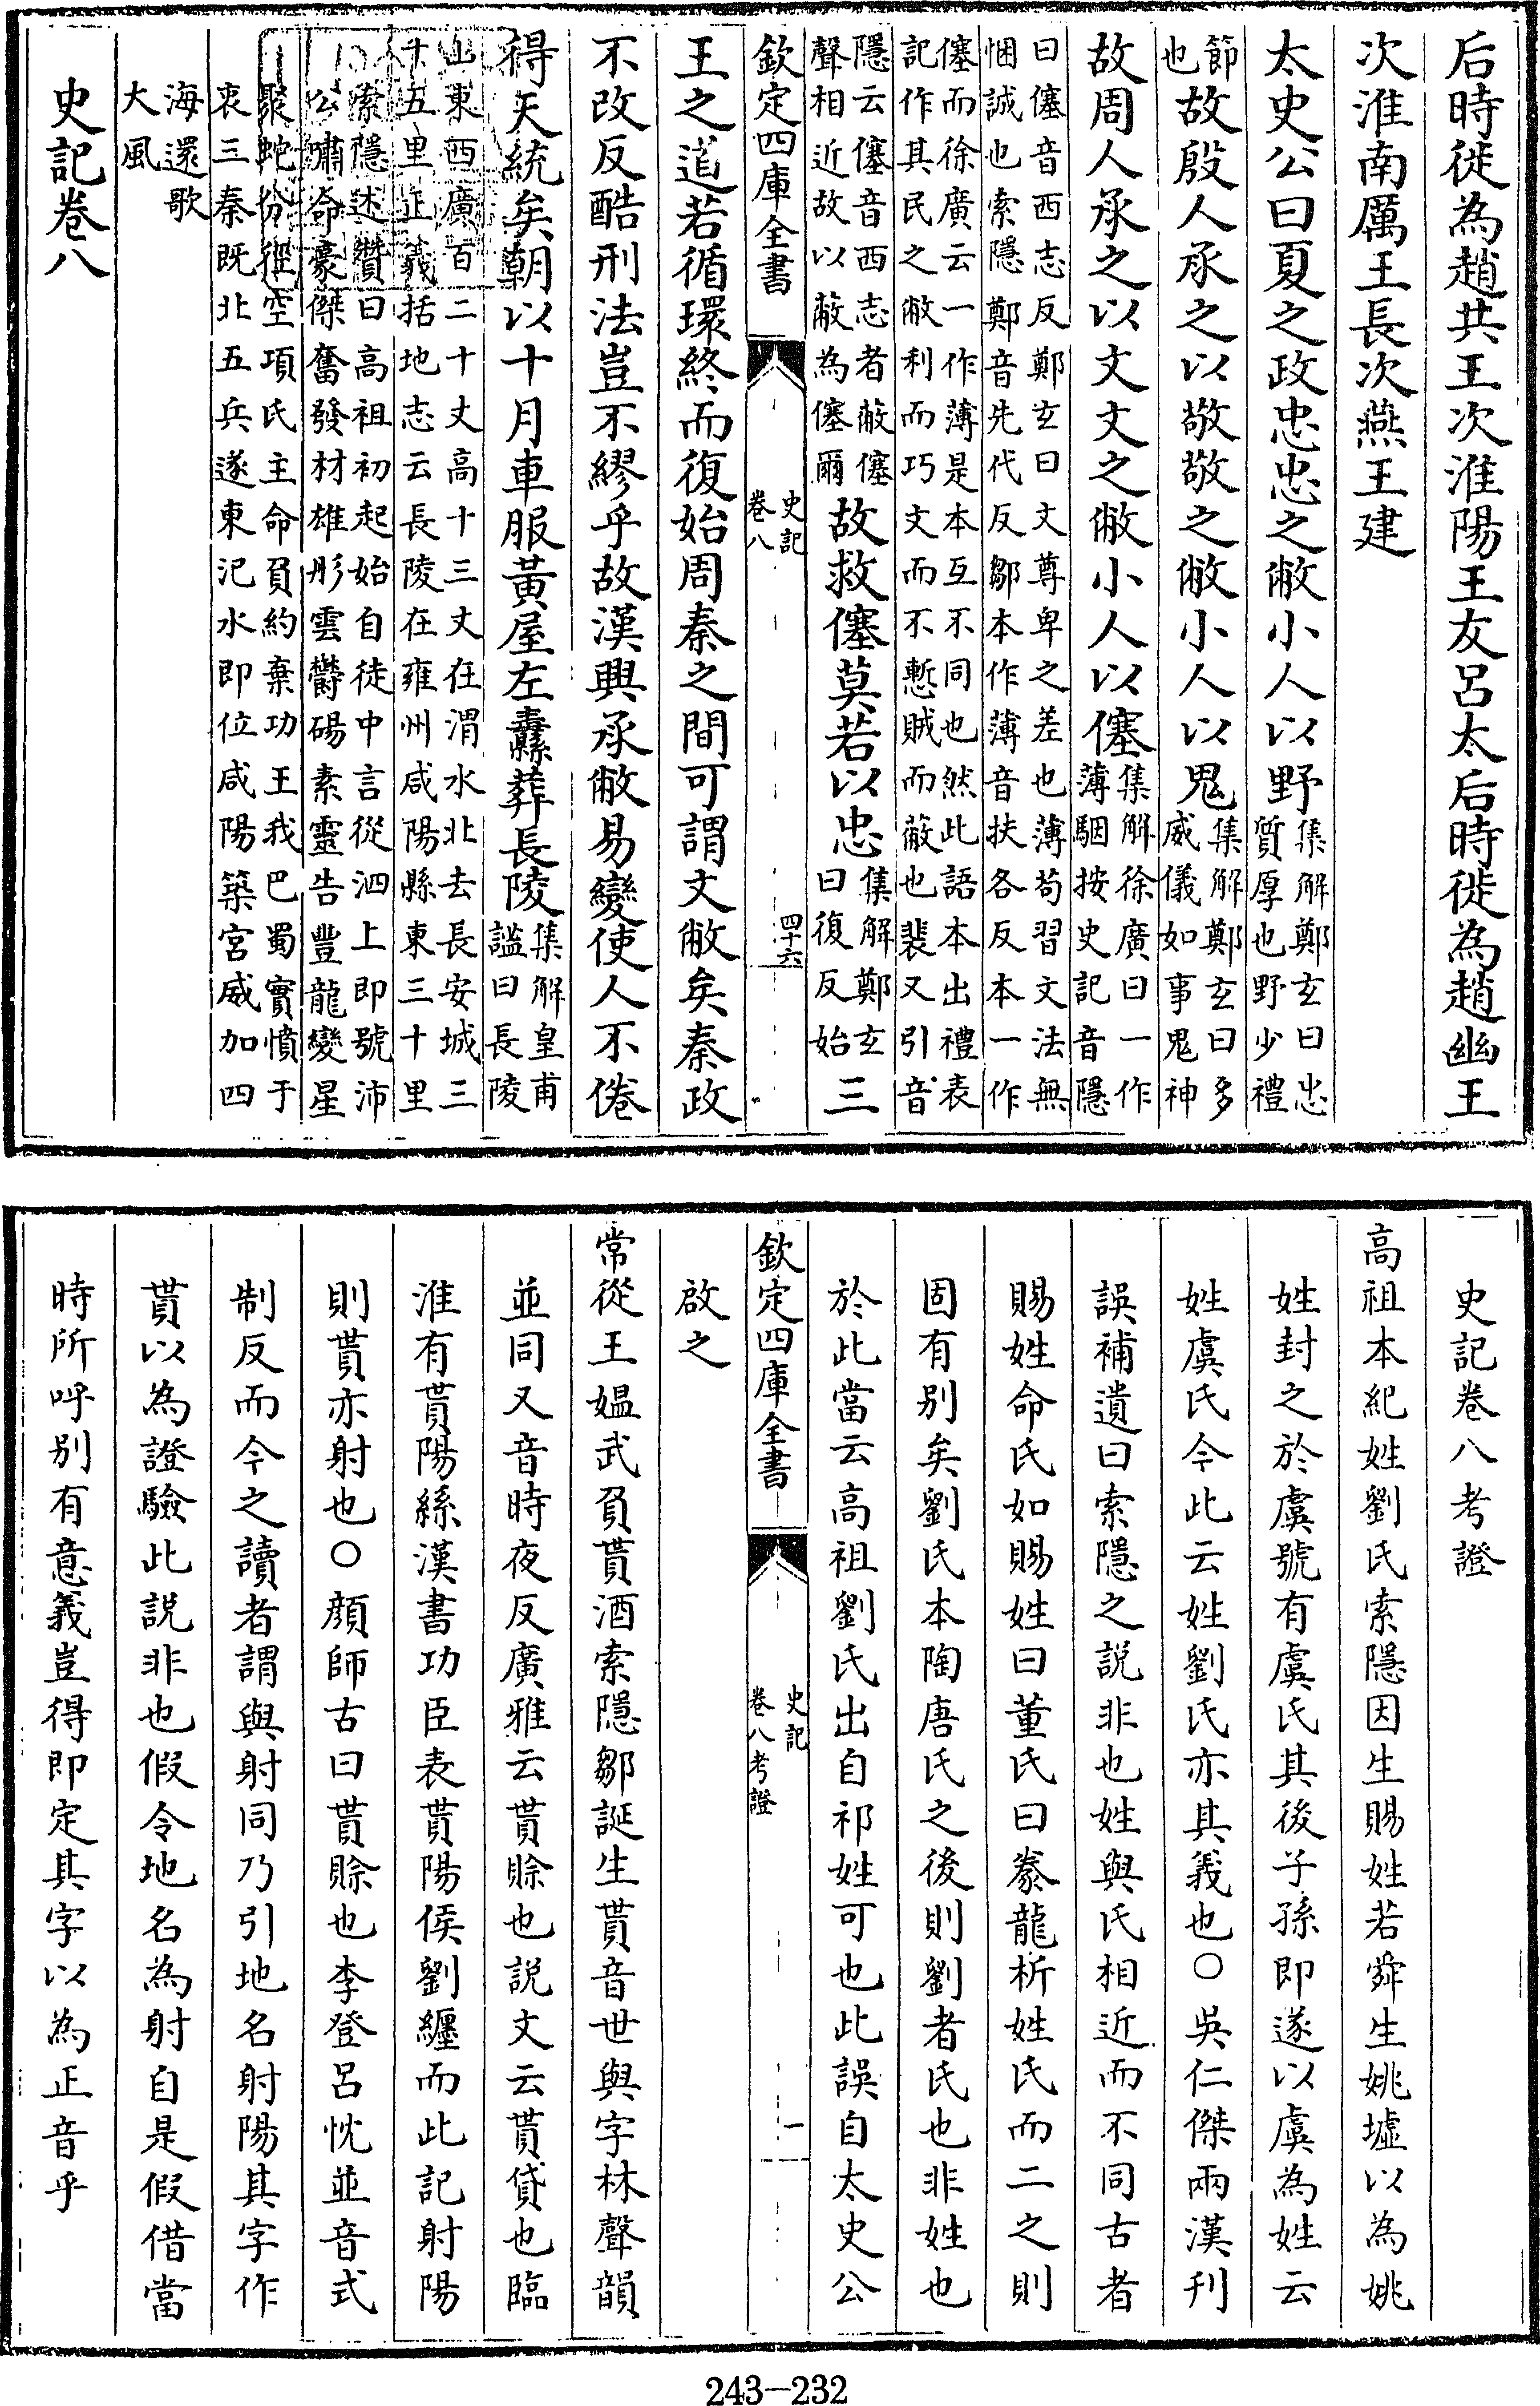 后時徙為趙共王次淮陽王友呂太后時徙為趙幽王
次淮南厲王長次燕王建
太史公曰夏之政忠忠之敝小人以野集解鄭玄曰忠
質厚也野少禮
節
也故殷人承之以敬敬之敝小人以鬼集解鄭玄曰多
威儀如事鬼神
故周人承之以文文之敝小人以僿集解徐廣曰一作
薄駰按史記音隱
曰僿音西志反鄭玄曰文尊卑之差也薄苟習文法無
悃誠也索隱鄭音先代反鄒本作薄音扶各反本一作
僿而徐廣云一作薄是本互不同也然此語本出禮表
記作其民之敝利而巧文而不慙賊而蔽也裴又引音
隱云僿音西志者蔽僿
聲相近故以蔽為僿爾故救僿莫若以忠集解鄭玄
曰復反始三
欽定四庫全書
史記
卷八
四十六
王之道若循環終而復始周秦之間可謂文敝矣秦政
不改反酷刑法豈不繆乎故漢興承敝易變使人不倦
得天統矣朝以十月車服黃屋左纛葬長陵集解皇甫
謚曰長陵
山東西廣百二十丈高十三丈在渭水北去長安城三
十五里正義括地志云長陵在雍州咸陽縣東三十里
索隱述贊曰高祖初起始自徒中言從泗上即號沛
公嘯命豪傑奮發材雄彤雲鬱碭素靈告豐龍變星
聚蛇分徑空項氏主命負約棄功王我巴蜀實憤于
衷三秦既北五兵遂東汜水即位咸陽築宮威加四
海還歌
大風
史記卷八
史記卷八考證
高祖本紀姓劉氏索隱因生賜姓若舜生姚墟以為姚
姓封之於虞號有虞氏其後子孫即遂以虞為姓云
姓虞氏今此云姓劉氏亦其義也○吳仁傑兩漢刊
誤補遺曰索隱之說非也姓與氏相近而不同古者
賜姓命氏如賜姓曰董氏曰豢龍析姓氏而二之則
固有別矣劉氏本陶唐氏之後則劉者氏也非姓也
於此當云高祖劉氏出自祁姓可也此誤自太史公
欽定四庫全書
史記
卷八考證
一
啟之
常從王媼武負貰酒索隱鄒誕生貰音世與字林聲韻
並同又音時夜反廣雅云貰賒也說文云貰貸也臨
淮有貰陽縣漢書功臣表貰陽侯劉纏而此記射陽
則貰亦射也○顏師古曰貰賒也李登呂忱並音式
制反而今之讀者謂與射同乃引地名射陽其字作
貰以為證驗此說非也假令地名為射自是假借當
時所呼別有意義豈得即定其字以為正音乎
243-232